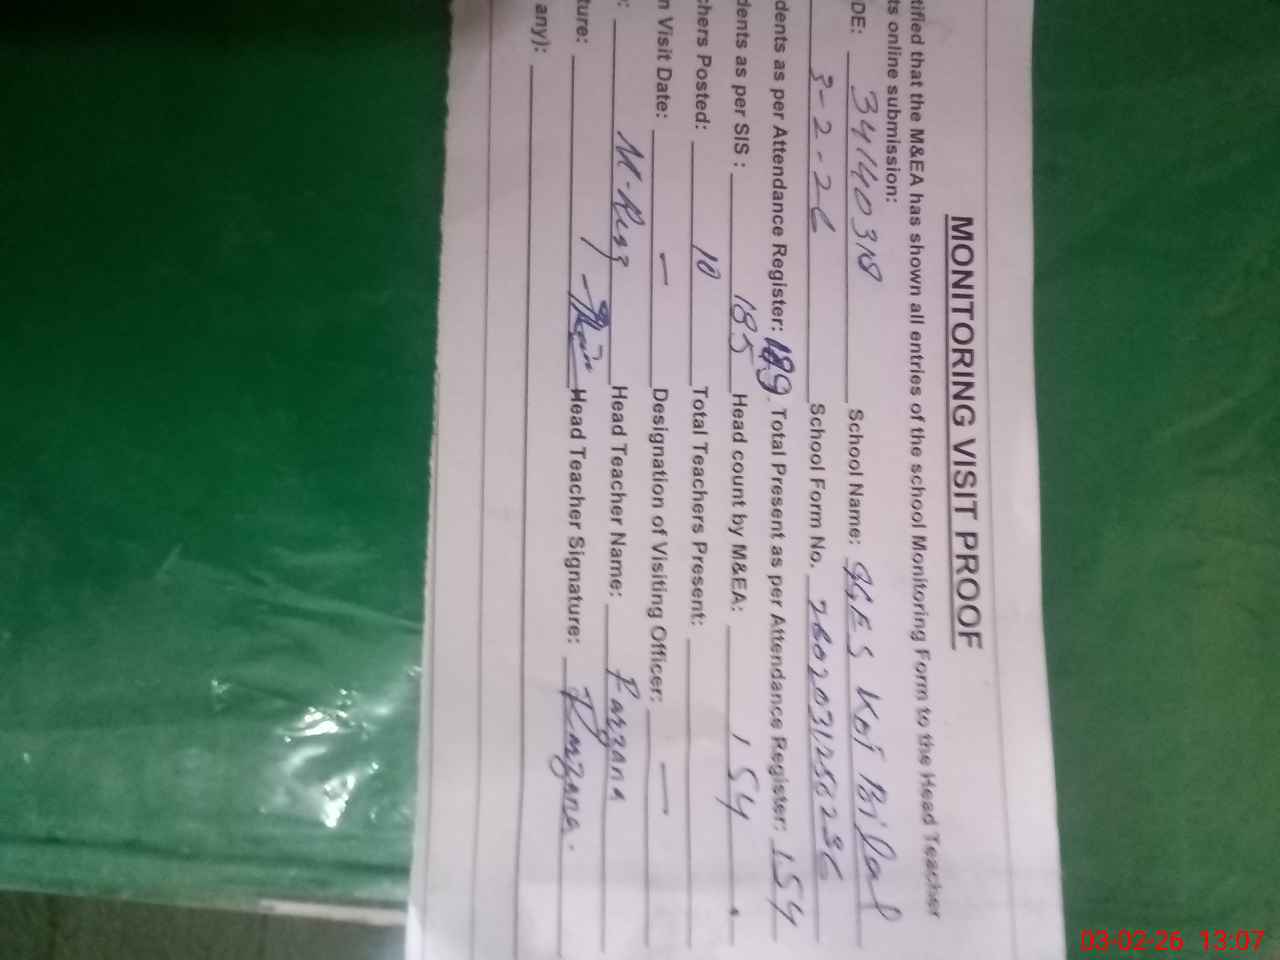 MONITORING VISIT PROOF
tified that the M&EA has shown all entries of the school Monitoring Form to the Head Teacher
ts online submission:
DE: 34140318 School Name: GGES Kot Bilal
3-2-26 School Form No.
dents as per Attendance Register: 189 Total Present as per Attendance Register: 154
dents as per SIS : 185 Head count by M&EA: 154
chers Posted: 10 Total Teachers Present:
n Visit Date: — Designation of Visiting Officer: —
: M. Riaz Head Teacher Name: Farzana
ture: Head Teacher Signature: Farzana.
any):
03-02-26 13:07